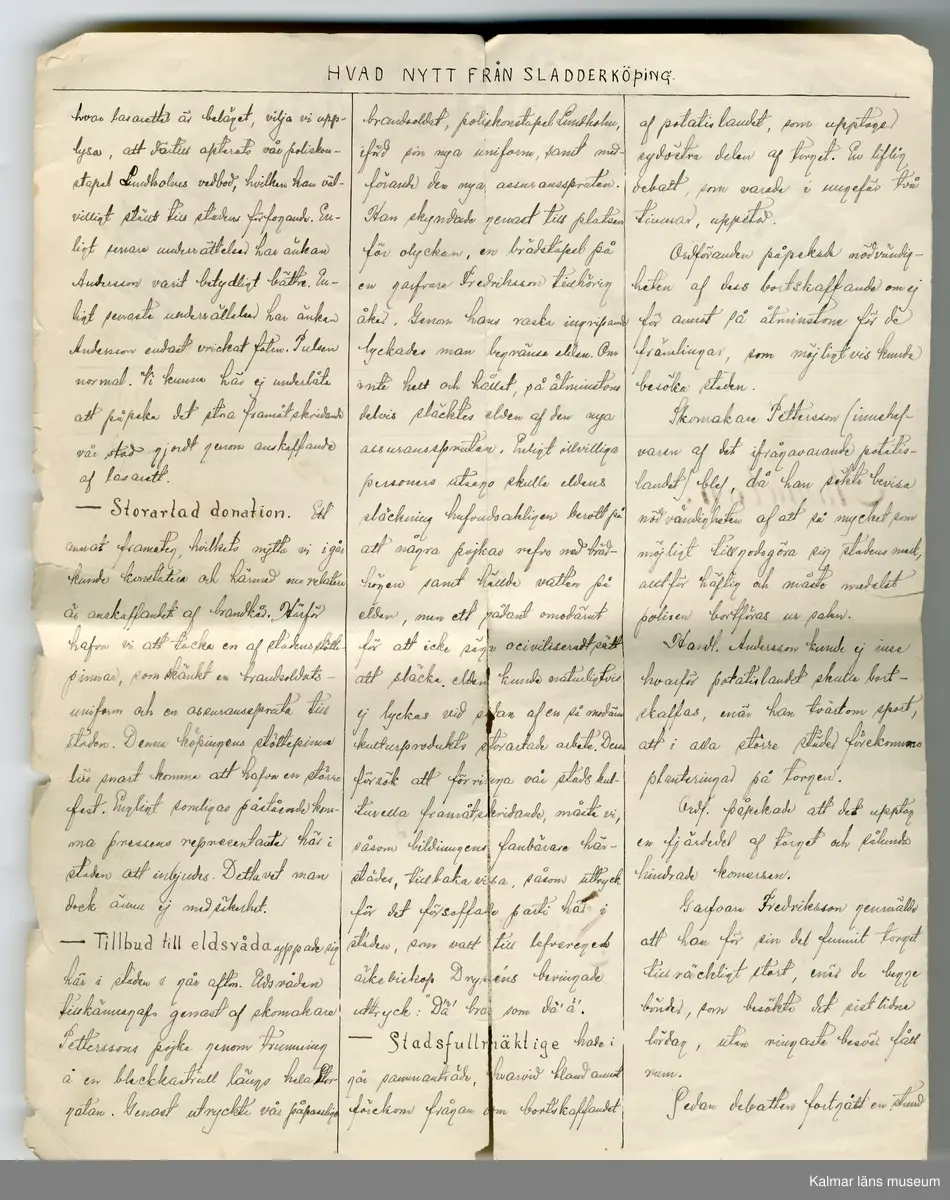 HVAD NYTT FRÅN SLADDERKÖPING.
hvar lasarettet är beläget, vilja vi upp-
lysa, att därtill apterats vår poliskon-
stapel Lundholms vedbod, hvilken han väl-
villigt ställt till stadens förfogande. En-
ligt senare underrättelser har änkan
Andersson varit betydligt bättre. En-
ligt senaste underrättelser har änkan
Andersson endast vrickat foten. Pulsen
normal. Vi kunna här ej underlåta
att påpeka det stora framåtskridande
vår stad gjordt genom anskaffande
af lasarett.
— Storartad donation. Ett
annat framsteg, hvilkets nytta vi i går
kunde konstatera och härmed nu relatera
är anskaffandet af brandkår. Härför
hafva vi att tacka en af stadens stötte-
pinnar, som skänkt en brandsoldats-
uniform och en assuransspruta till
staden. Denna köpingens stöttepinne
lär snart komma att hafva en större
fest. Enligt somligas påstående kom-
ma pressens representanter här i
staden att inbjudas. Detta vet man
dock ännu ej med säkerhet.
— Tillbud till eldsvåda yppade sig
här i staden i går afton. Eldsvådan
tillkännagafs genast af skomakare
Petterssons pojke genom trumning
å en bleckkastrull längs hela Stor-
gatan. Genast utryckte vår påpasslige
brandsoldat, poliskonstapel Lundholm,
iförd sin nya uniform, samt med-
förande den nya assuranssprutan.
Han skyndade genast till platsen
för olyckan, en brädstapel på
en garfvare Fredriksson tillhörig
åker. Genom hans raska ingripande
lyckades man begränsa elden. Om
inte helt och hållet, så åtminstone
delvis släcktes elden af den nya
assuranssprutan. Enligt illvilliga
personers utsago skulle eldens
släckning hufvudsakligen berott på
att några pojkar refvo ned bräd-
högen samt hällde vatten på
elden, men ett sådant omodärnt
för att icke säga ociviliseradt sätt
att släcka elden kunde naturligtvis
ej lyckas vid sidan af en så modärn
kulturprodukts storartade arbete. Detta
försök att förringa vår stads kul-
turella framåtskridande, måste vi,
såsom bildningens fanbärare här-
städes, tillbakavisa, såsom uttryck
för det försoffade parti här i
staden, som valt till lefvoregel
ärkebiskop Drypéns bevingade
uttryck: "Dä ä' bra som dä ä'.
— Stadsfullmäktige hade i
går sammanträde, hvarvid bland annat
förekom frågan om bortskaffandet
af potatislandet, som upptoge
sydöstra delen af torget. En liflig
debatt, som varade i ungefär två
timmar, uppstod.
Ordföranden påpekade nödvändig-
heten af dess bortskaffande om ej
för annat så åtminstone för de
främlingar, som möjligtvis kunde
besöka staden.
Skomakare Pettersson (innehaf-
varen af det ifrågavarande potatis-
landet) blef, då han sökte bevisa
nödvändigheten af att så mycket som
möjligt tillgodogöra sig stadens mark,
alltför häftig och måste medelst
polisen bortföras ur salen.
Handl. Andersson kunde ej inse
hvarför potatislandet skulle bort-
skaffas, enär han tvärtom sport,
att i alla större städer förekommo
planteringar på torgen.
Ordf. påpekade att det upptog
en fjärdedel af torget och sålunda
hindrade komersen.
Garfvare Fredriksson genmälde
att han för sin del funnit torget
tillräckligt stort, enär de begge
bönder, som besökte det sistlidne
lördag, utan ringaste besvär fått
rum.
Sedan debatten fortgått en stund
Kalmar läns museum